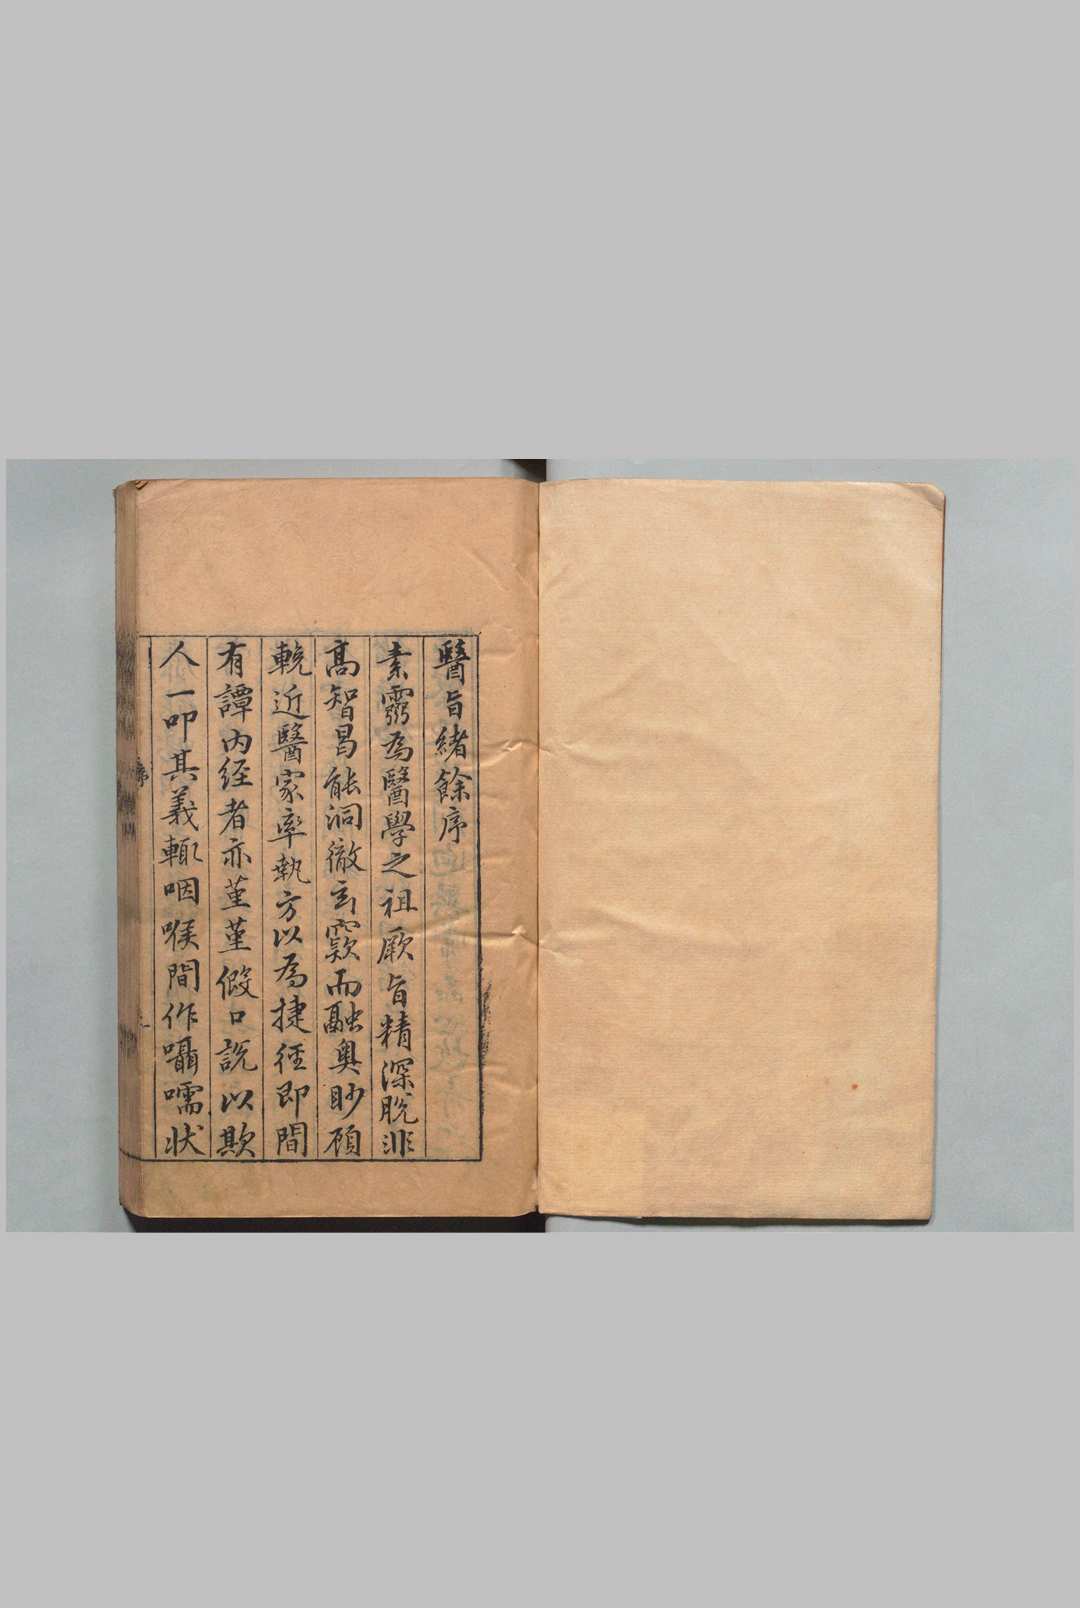 醫旨緒餘序
素靈為醫學之祖厥旨精深脫非
高智曷能洞徹玄窾而融奧眇顧
輓近醫家率執方以為捷徑即間
有譚內經者亦堇堇假口說以欺
人一叩其義輒咽喉間作囁嚅狀
序
一